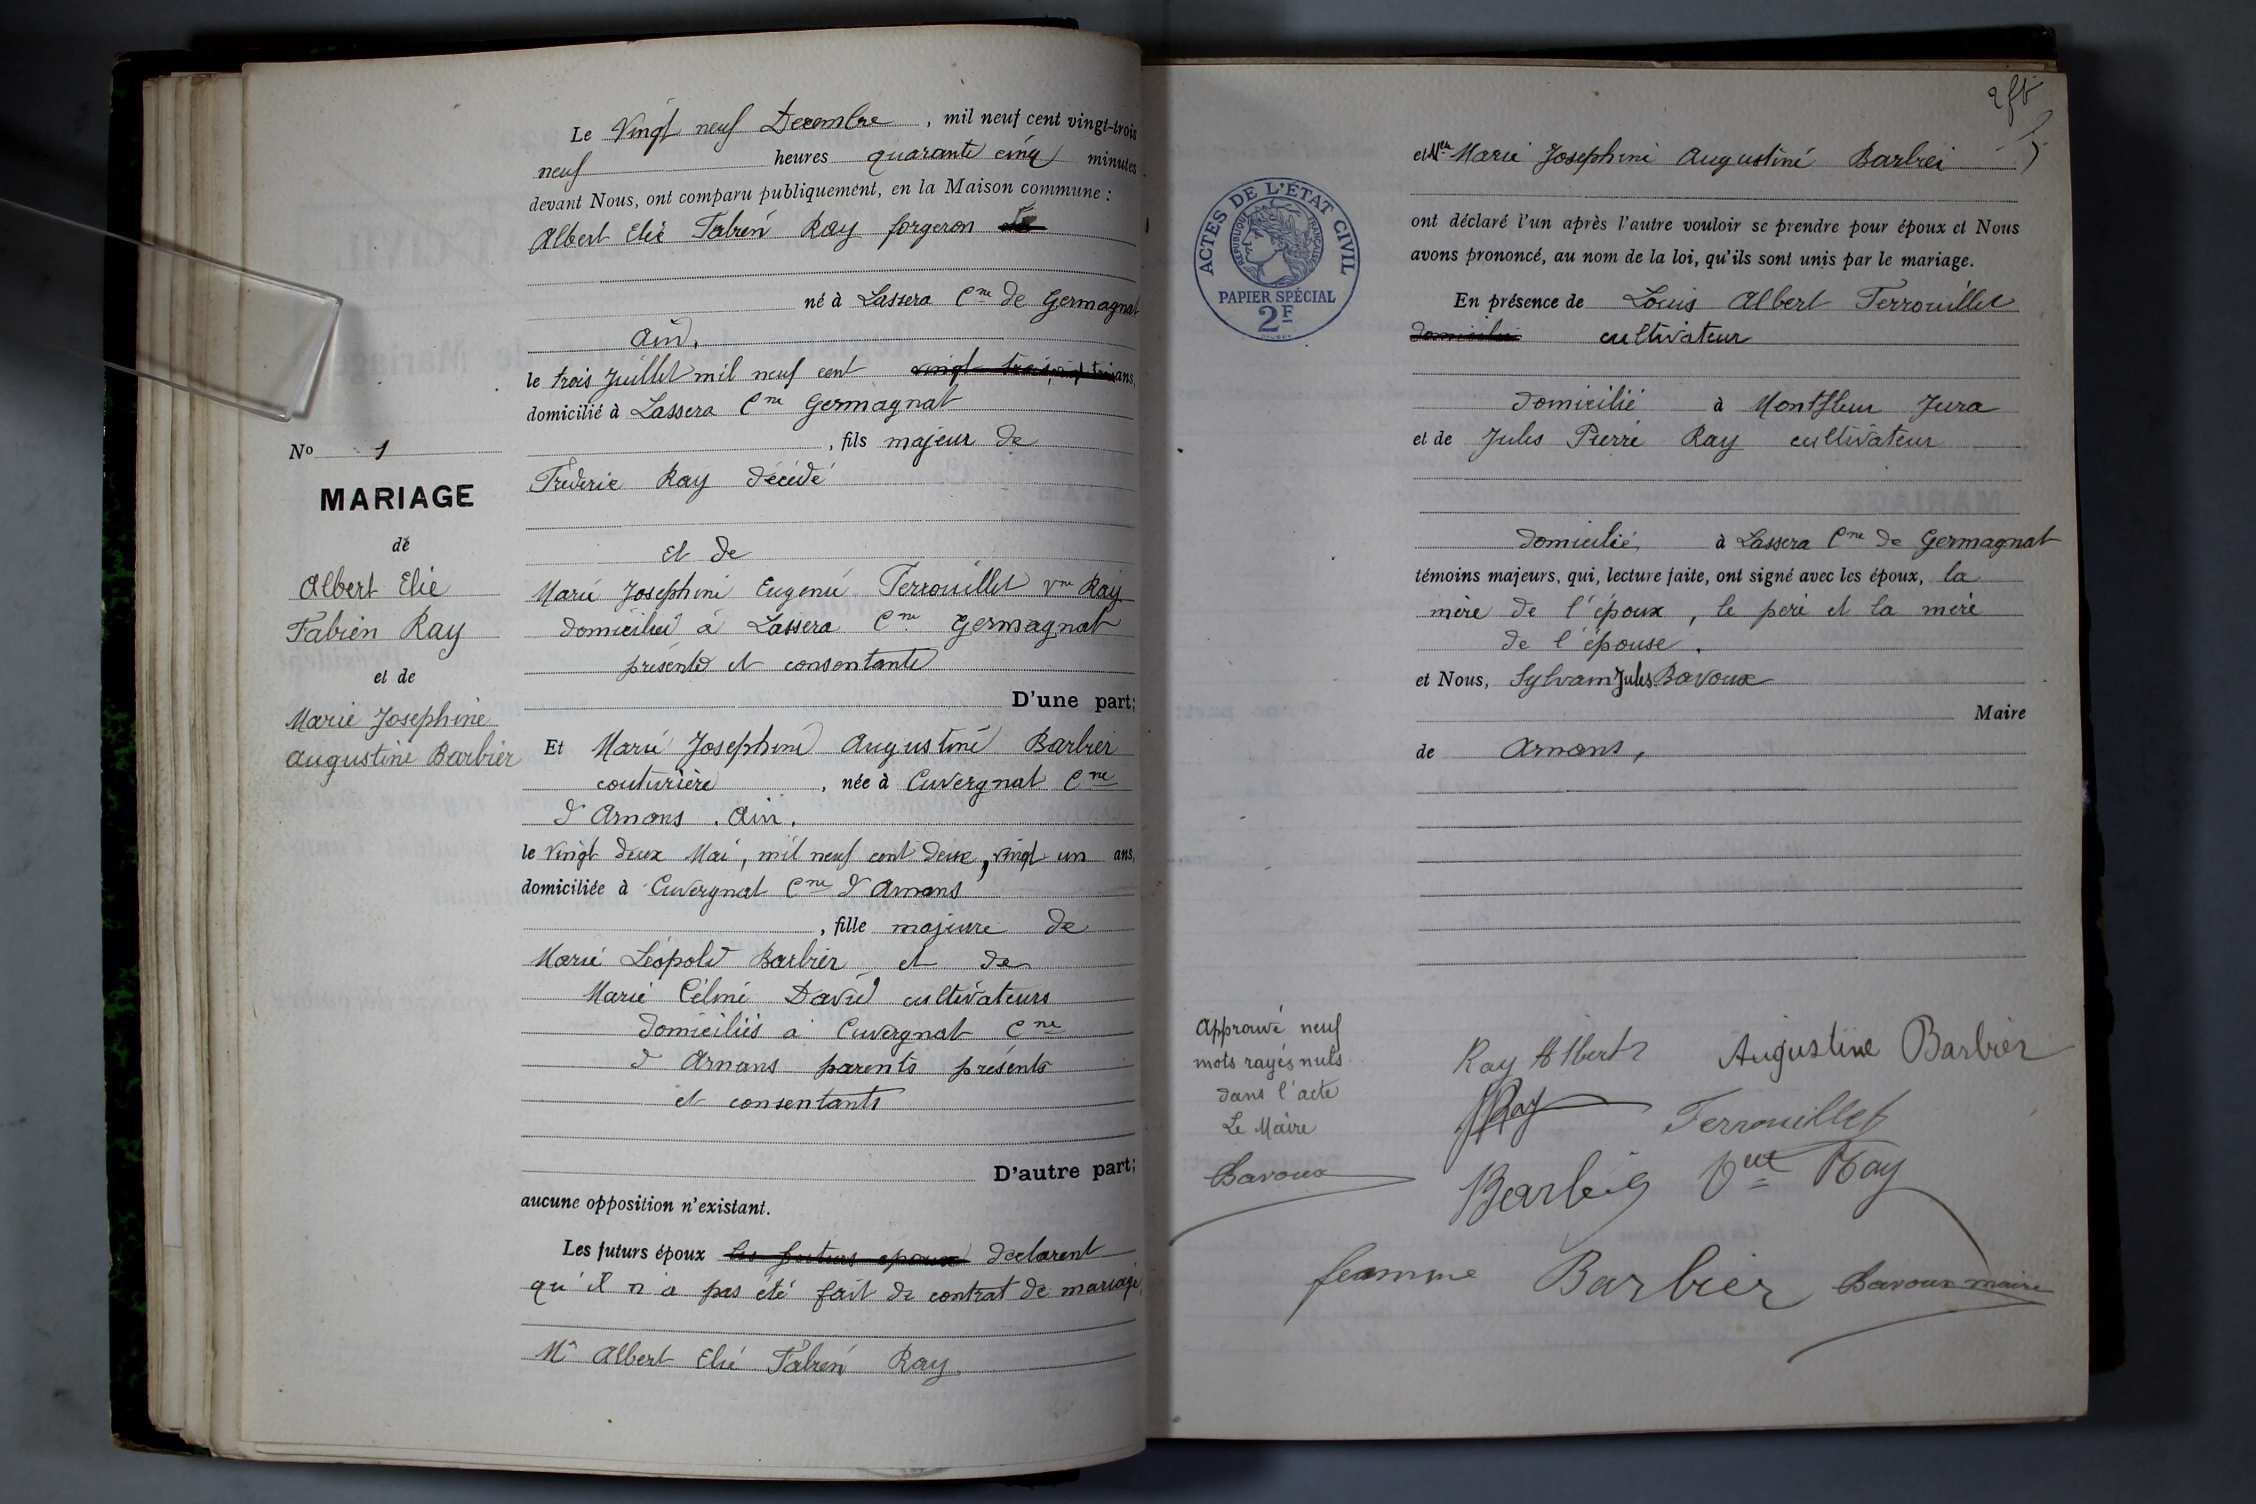 Le Vingt neuf Decembre, mil neuf cent vingt-trois
neuf heures quarante cinq minutes
devant Nous, ont comparu publiquement, en la Maison commune :
Albert Elie Fabien Ray forgeron
né à Lassera Cne de Germagnat
Ain.
le trois Juillet mil neuf cent vingt trois, ans,
domicilié à Lassera Cne Germagnat
, fils majeur de
Fréderic Ray décédé
et de
Marie Josephine Eugenie Ferrouillet Vve Ray
domiciliée à Lassera Cne Germagnat
présente et consentante
D'une part;
Et Marie Josephine Augustine Barbier
couturière, née à Cuvergnat Cne
d'Arnans. Ain.
le vingt deux Mai, mil neuf cent deux, vingt un ans,
domiciliée à Cuvergnat Cne d'Arnans
, fille majeure de
Marie Léopold Barbier et de
Marie Céline David cultivateurs
domiciliés à Cuvergnat Cne
d'Arnans parents présents
et consentants
D'autre part;
aucune opposition n'existant.
Les futurs époux les futurs epoux declarent
qu'il n'a pas été fait de contrat de mariage,
Mr Albert Elie Fabien Ray
No 1
MARIAGE
de
Albert Elie
Fabien Ray
et de
Marie Josephine
Augustine Barbier
et Melle Marie Josephine Augustine Barbier
ont déclaré l'un après l'autre vouloir se prendre pour époux et Nous
avons prononcé, au nom de la loi, qu'ils sont unis par le mariage.
En présence de Louis Albert Ferrouillet
domicilié cultivateur
domicilié à Montfleur Jura
et de Jules Pierre Ray cultivateur
domicilié, à Lassera Cne de Germagnat
témoins majeurs, qui, lecture faite, ont signé avec les époux, la
mère de l'époux, le père et la mère
de l'épouse.
et Nous, Sylvain Jules Bavoux
Maire
de Arnans,
ACTES DE L'ÉTAT CIVIL
RÉPUBLIQUE FRANÇAISE
PAPIER SPÉCIAL
2F
Approuvé neuf
mots rayés nuls
dans l'acte
Le Maire
Bavoux
Ray Albert Augustine Barbier
Ray Ferrouillet
Barbier Vve Ray
femme Barbier Bavoux maire